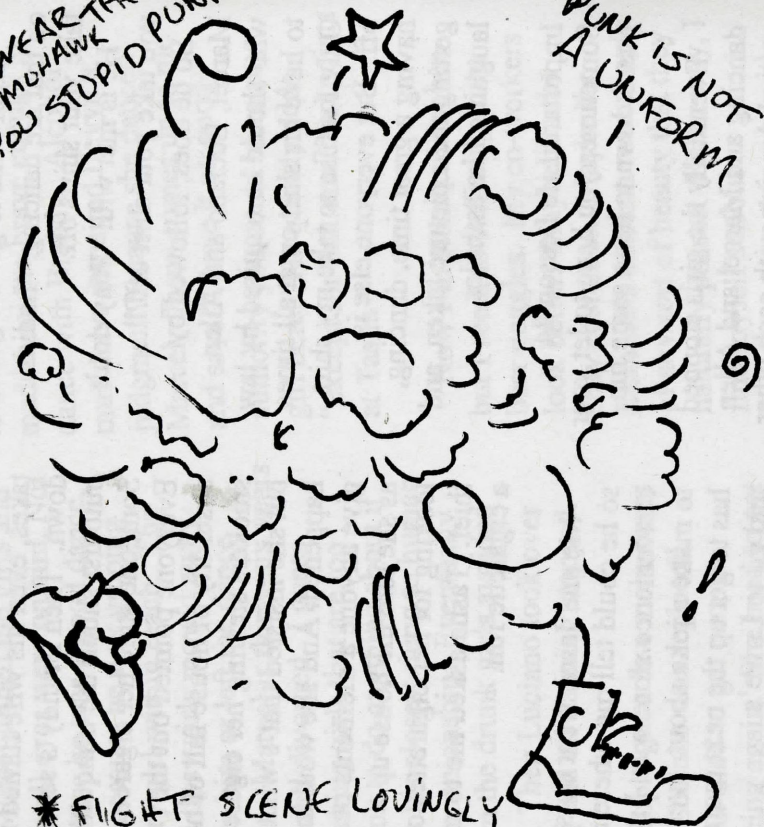 WEAR THE
MOHAWK
YOU STUPID PUNK
PUNK IS NOT
A UNFORM
!
* FIGHT SCENE LOVINGLY